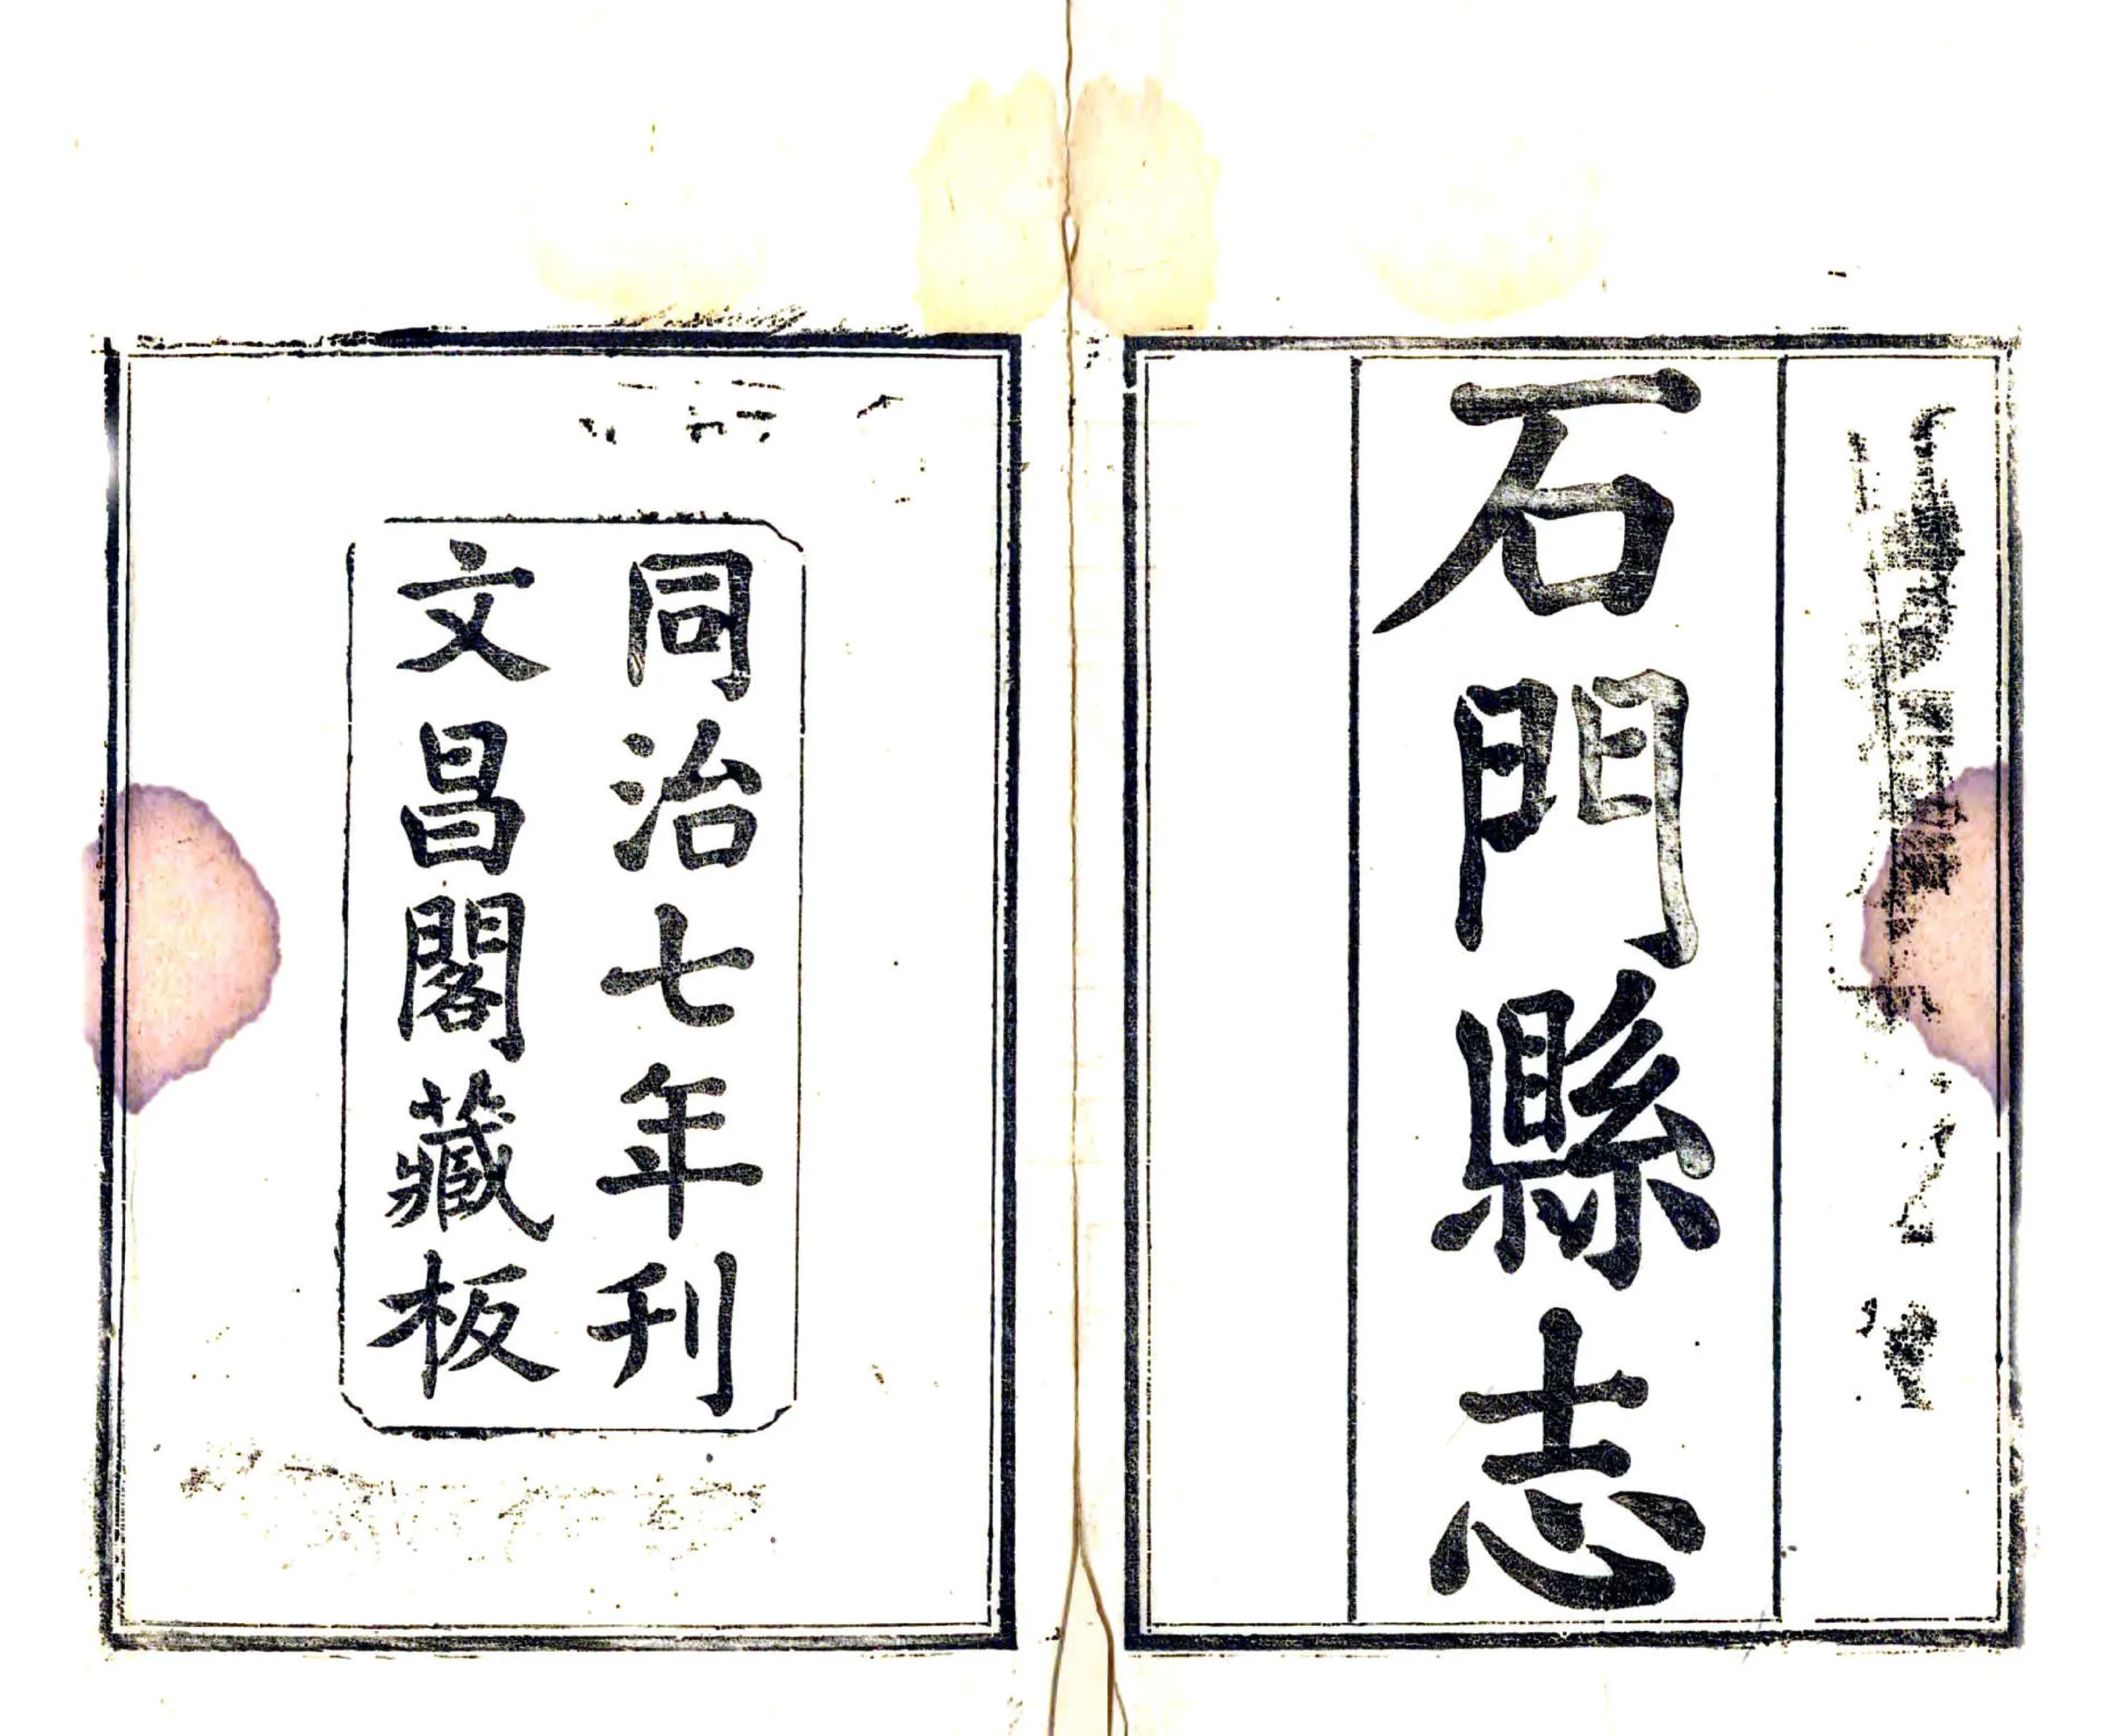 石門縣志
同治七年刊
文昌閣藏板